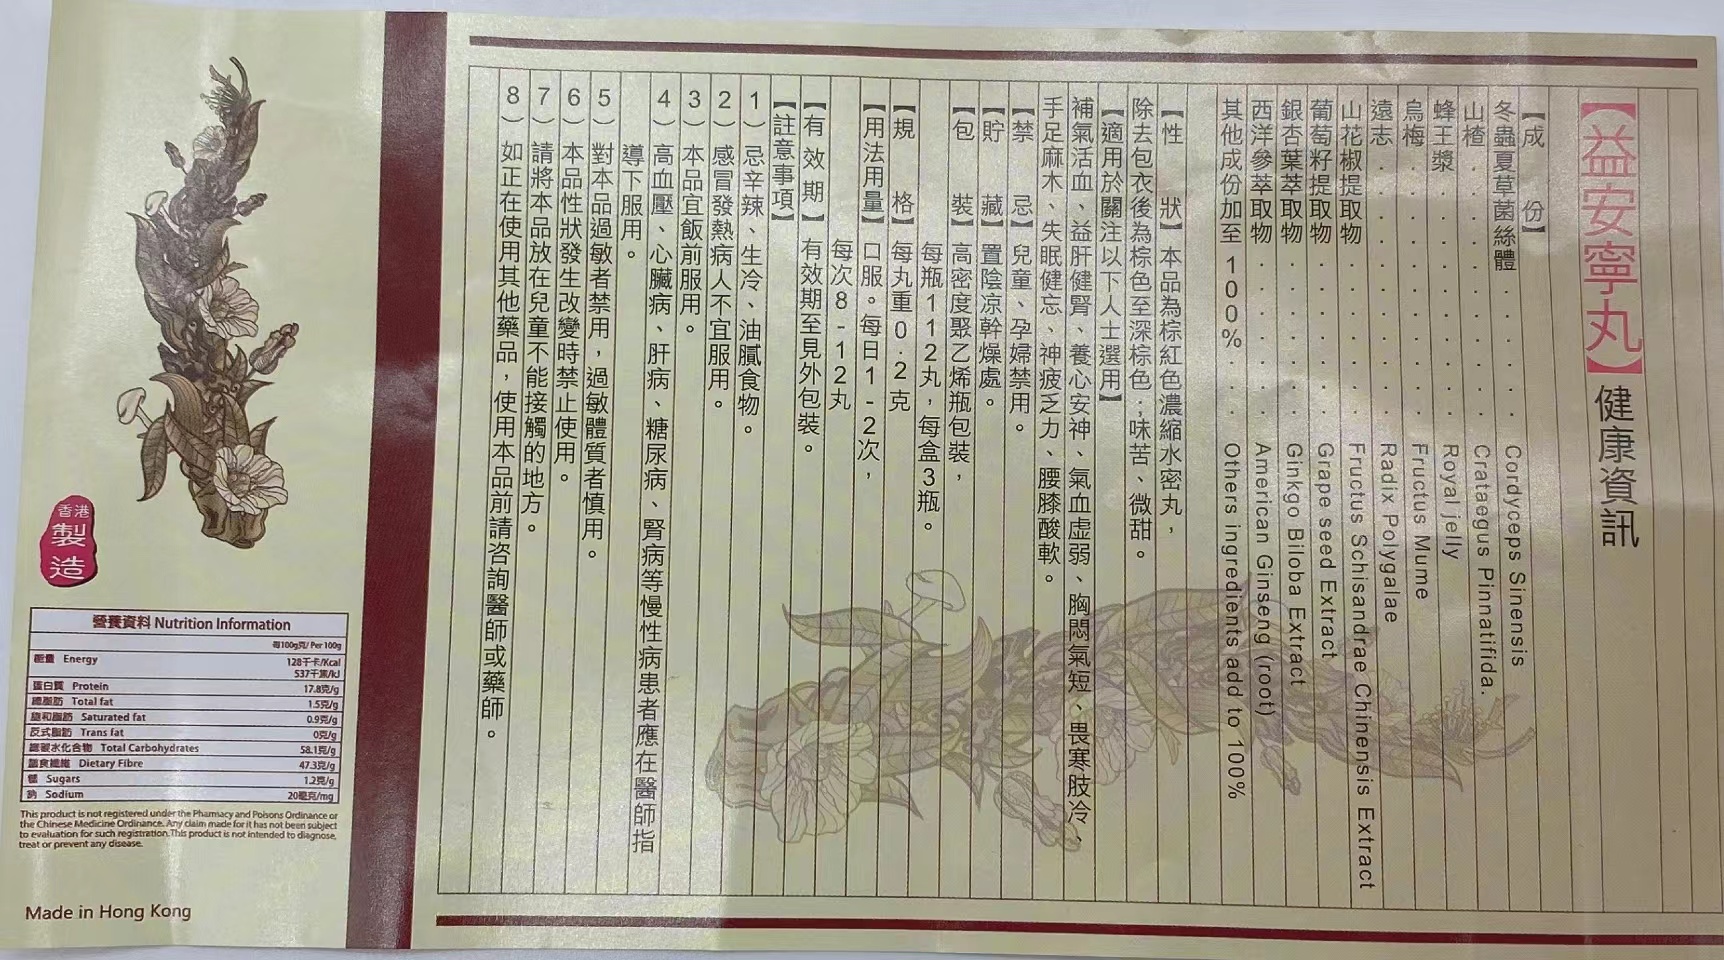 【益安寧丸】健康資訊
【成 份】
冬蟲夏草菌絲體 . . . . . Cordyceps Sinensis
山楂 . . . . . . . . Crataegus Pinnatifida.
蜂王漿 . . . . . . . Royal jelly
烏梅 . . . . . . . . Fructus Mume
遠志 . . . . . . . . Radix Polygalae
山花椒提取物 . . . . . Fructus Schisandrae Chinensis Extract
葡萄籽提取物 . . . . . Grape seed Extract
銀杏葉萃取物 . . . . . Ginkgo Biloba Extract
西洋參萃取物 . . . . . American Ginseng (root)
其他成份加至100% . . . Others ingredients add to 100%
【性 狀】本品為棕紅色濃縮水密丸，
除去包衣後為棕色至深棕色；味苦、微甜。
【適用於關注以下人士選用】
補氣活血、益肝健腎、養心安神、氣血虛弱、胸悶氣短、畏寒肢冷、
手足麻木、失眠健忘、神疲乏力、腰膝酸軟。
【禁 忌】兒童、孕婦禁用。
【貯 藏】置陰涼幹燥處。
【包 裝】高密度聚乙烯瓶包裝，
每瓶112丸，每盒3瓶。
【規 格】每丸重0.2克
【用法用量】口服。每日1-2次，
每次8-12丸
【有 效 期】有效期至見外包裝。
【註意事項】
1）忌辛辣、生冷、油膩食物。
2）感冒發熱病人不宜服用。
3）本品宜飯前服用。
4）高血壓、心臟病、肝病、糖尿病、腎病等慢性病患者應在醫師指
導下服用。
5）對本品過敏者禁用，過敏體質者慎用。
6）本品性狀發生改變時禁止使用。
7）請將本品放在兒童不能接觸的地方。
8）如正在使用其他藥品，使用本品前請咨詢醫師或藥師。
香港
製
造
營養資料 Nutrition Information
每100g克/ Per 100g
能量 Energy 128千卡/Kcal
537千焦/kJ
蛋白質 Protein 17.8克/g
總脂肪 Total fat 1.5克/g
飽和脂肪 Saturated fat 0.9克/g
反式脂肪 Trans fat 0克/g
總碳水化合物 Total Carbohydrates 58.1克/g
膳食纖維 Dietary Fibre 47.3克/g
糖 Sugars 1.2克/g
鈉 Sodium 20毫克/mg
This product is not registered under the Pharmacy and Poisons Ordinance or
the Chinese Medicine Ordinance. Any claim made for it has not been subject
to evaluation for such registration. This product is not intended to diagnose,
treat or prevent any disease.
Made in Hong Kong